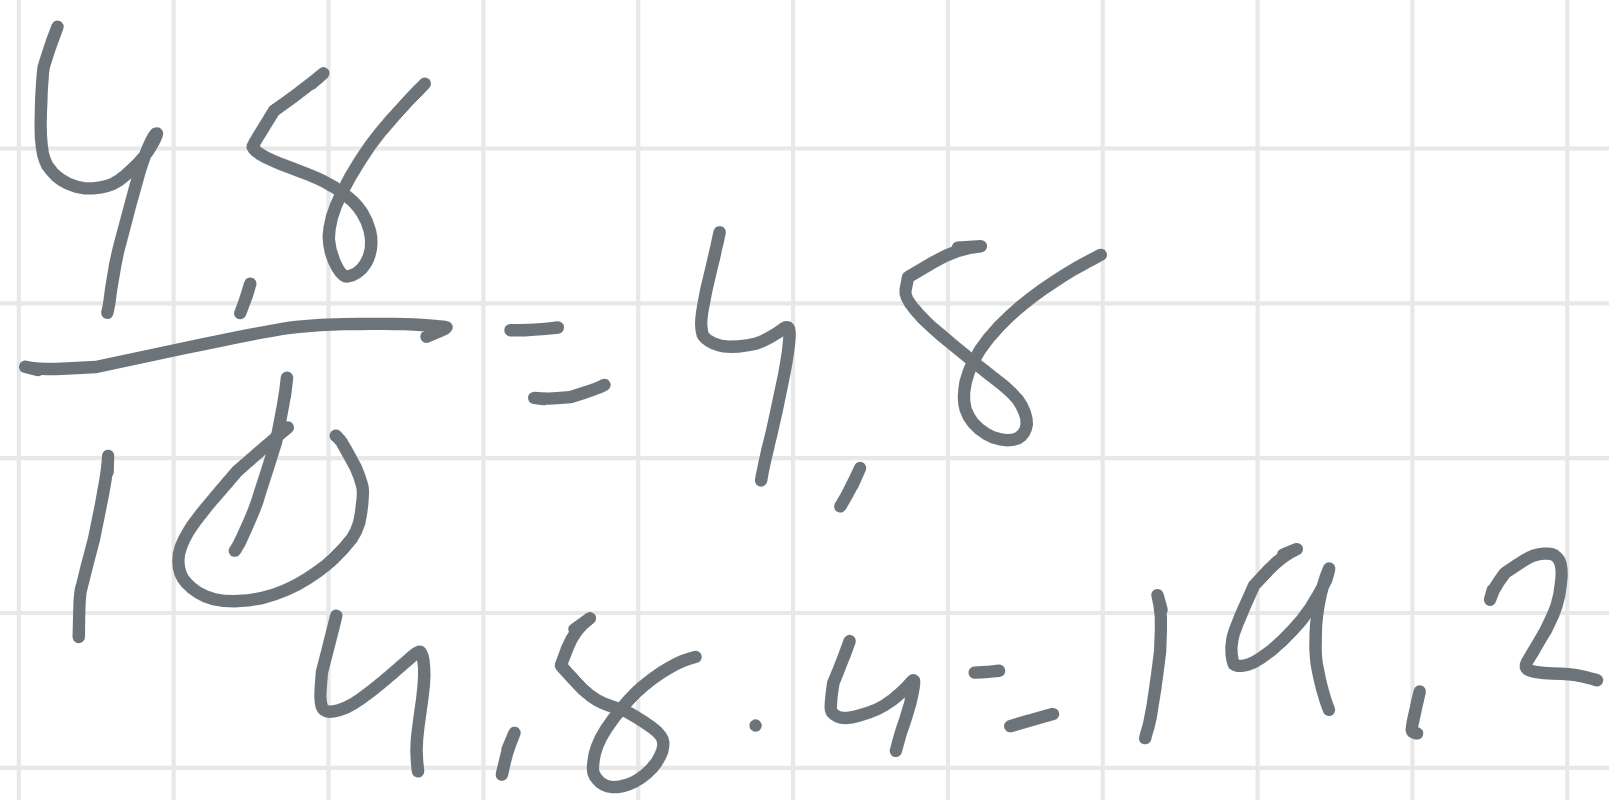 4,8/10 = 4,8
4,8 · 4 = 19,2